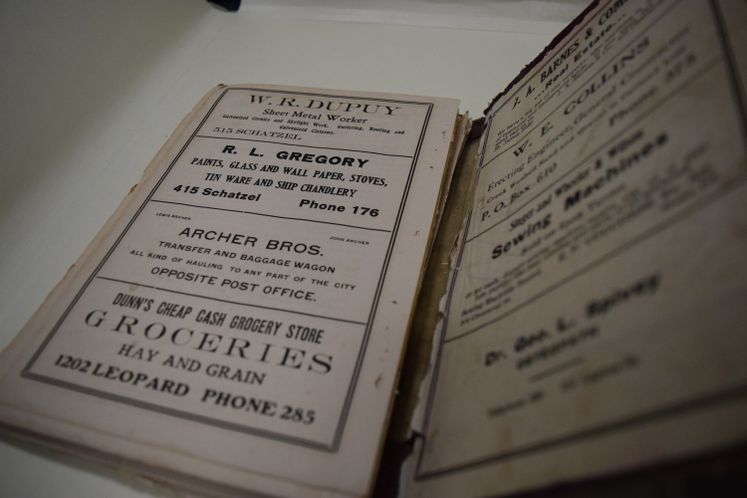 W. R. DUPUY
Sheet Metal Worker
Galvanized Cornice and Skylight Work. Guttering, Roofing and
Galvanized Cisterns.
515 SCHATZEL
R. L. GREGORY
PAINTS, GLASS AND WALL PAPER, STOVES,
TIN WARE AND SHIP CHANDLERY
415 Schatzel Phone 176
LEWIS ARCHER JOHN ARCHER
ARCHER BROS.
TRANSFER AND BAGGAGE WAGON
ALL KIND OF HAULING TO ANY PART OF THE CITY
OPPOSITE POST OFFICE.
DUNN'S CHEAP CASH GROCERY STORE
GROCERIES
HAY AND GRAIN
1202 LEOPARD PHONE 285
J. A. BARNES & COM
...Real Estate...
W. E. COLLINS
Erecting Engineer, General
P. O. Box 610 Phone
Singer and Wheeler & Wilson
Sewing Machines
Dr. Geo. L. Spivey